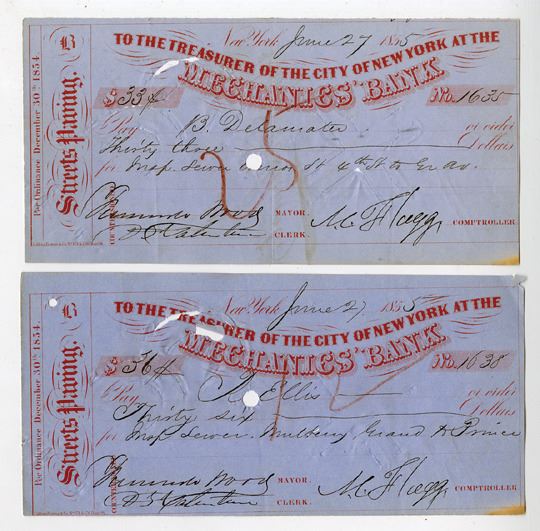 Per Ordinance December 30th 1854.
Streets Paving.
B
New York June 27 1855
TO THE TREASURER OF THE CITY OF NEW YORK AT THE
MECHANICS' BANK
$ 33 No. 1635
Pay B. Delamater or order
Thirty three Dollars
for Insp. Sewer St 4th St to Gr. Av.
Fernando Wood MAYOR.
M Flagg COMPTROLLER
D T Valentine CLERK.
Per Ordinance December 30th 1854.
Streets Paving.
B
New York June 27, 1855
TO THE TREASURER OF THE CITY OF NEW YORK AT THE
MECHANICS' BANK
$ 36 No. 1638
Pay Ellis or order
Thirty six Dollars
for Insp. Sewer. Mulberry Grand to Prince
Fernando Wood MAYOR.
M Flagg COMPTROLLER
D T Valentine CLERK.